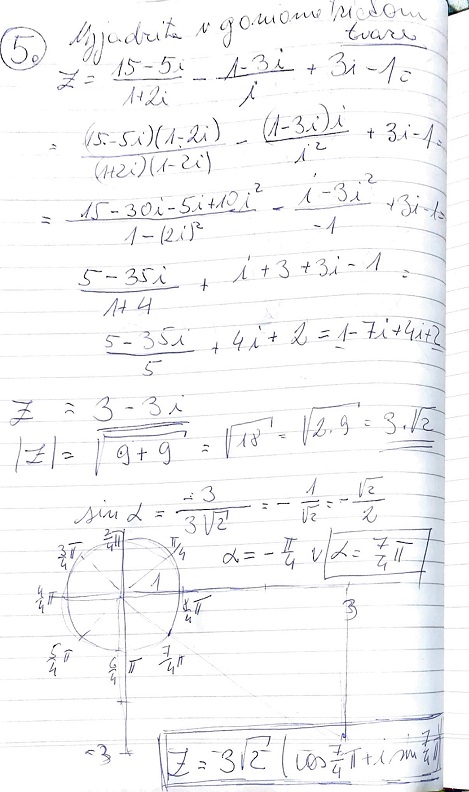 5. Vyjádřete v goniometrickém
tvaru
Z = \frac{15-5i}{1+2i} - \frac{1-3i}{i} + 3i - 1 =
= \frac{(15-5i)(1-2i)}{(1+2i)(1-2i)} - \frac{(1-3i)i}{i²} + 3i - 1 =
= \frac{15-30i-5i+10i²}{1-(2i)²} - \frac{i-3i²}{-1} + 3i-1 =
\frac{5-35i}{1+4} + i + 3 + 3i - 1 =
\frac{5-35i}{5} + 4i + 2 = 1-7i+4i+2
Z = 3 - 3i
|Z| = √(9+9) = √18 = √(2.9) = 3.√2
sin α = \frac{-3}{3√2} = -\frac{1}{√2} = -\frac{√2}{2}
α = -\frac{π}{4} v α = \frac{7}{4}π
\frac{2}{4}π
\frac{3}{4}π π/4
\frac{4}{4}π 1 π 3
\frac{5}{4}π \frac{6}{4}π \frac{7}{4}π
-3
Z = 3√2 (cos \frac{7}{4}π + i sin \frac{7}{4}π)